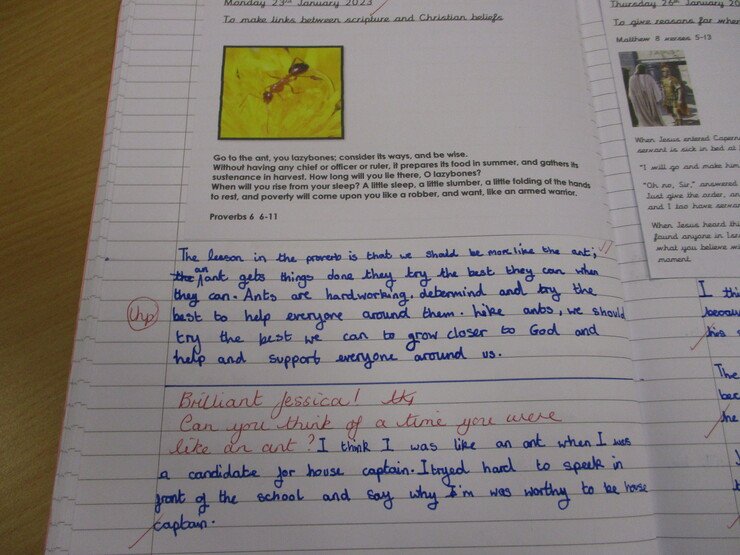 Monday 23rd January 2023
To make links between scripture and Christian beliefs
Go to the ant, you lazybones; consider its ways, and be wise.
Without having any chief or officer or ruler, it prepares its food in summer, and gathers its
sustenance in harvest. How long will you lie there, O lazybones?
When will you rise from your sleep? A little sleep, a little slumber, a little folding of the hands
to rest, and poverty will come upon you like a robber, and want, like an armed warrior.
Proverbs 6 6-11
The lesson in the proverb is that we should be more like the ant;
the an ant gets things done they try the best they can when
they can. Ants are hardworking, determind and try the
1hp
best to help everyone around them. Like ants, we should
try the best we can to grow closer to God and
help and support everyone around us.
Brilliant Jessica!
Can you think of a time you were
like an ant? I think I was like an ant when I was
a candidate for house captain. I tryed hard to speek in
front of the school and say why I'm was worthy to be house
captain.
Thursday 26th January 20
To give reasons for
Matthew 8 verses 5-13
When Jesus entered
servant is sick in bed at
"I will go and make him
"Oh no, Sir," answered
Just give the order, an
and I too have
When Jesus heard
found anyone in
what you believe
moment.
I
his
The
he